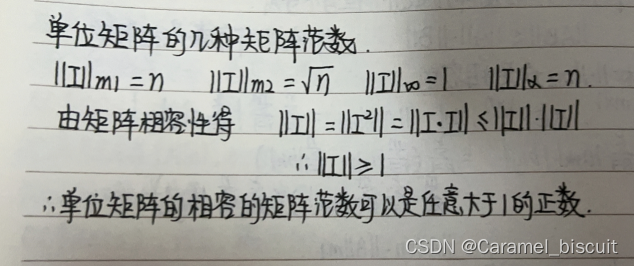 单位矩阵的几种矩阵范数.
||I||m1 = n ||I||m2 = √n ||I||∞ = 1 ||I||α = n.
由矩阵相容性得 ||I|| = ||I²|| = ||I·I|| ≤ ||I||·||I||
∴ ||I|| ≥ 1
∴单位矩阵的相容的矩阵范数可以是任意大于1的正数.
CSDN @Caramel_biscuit